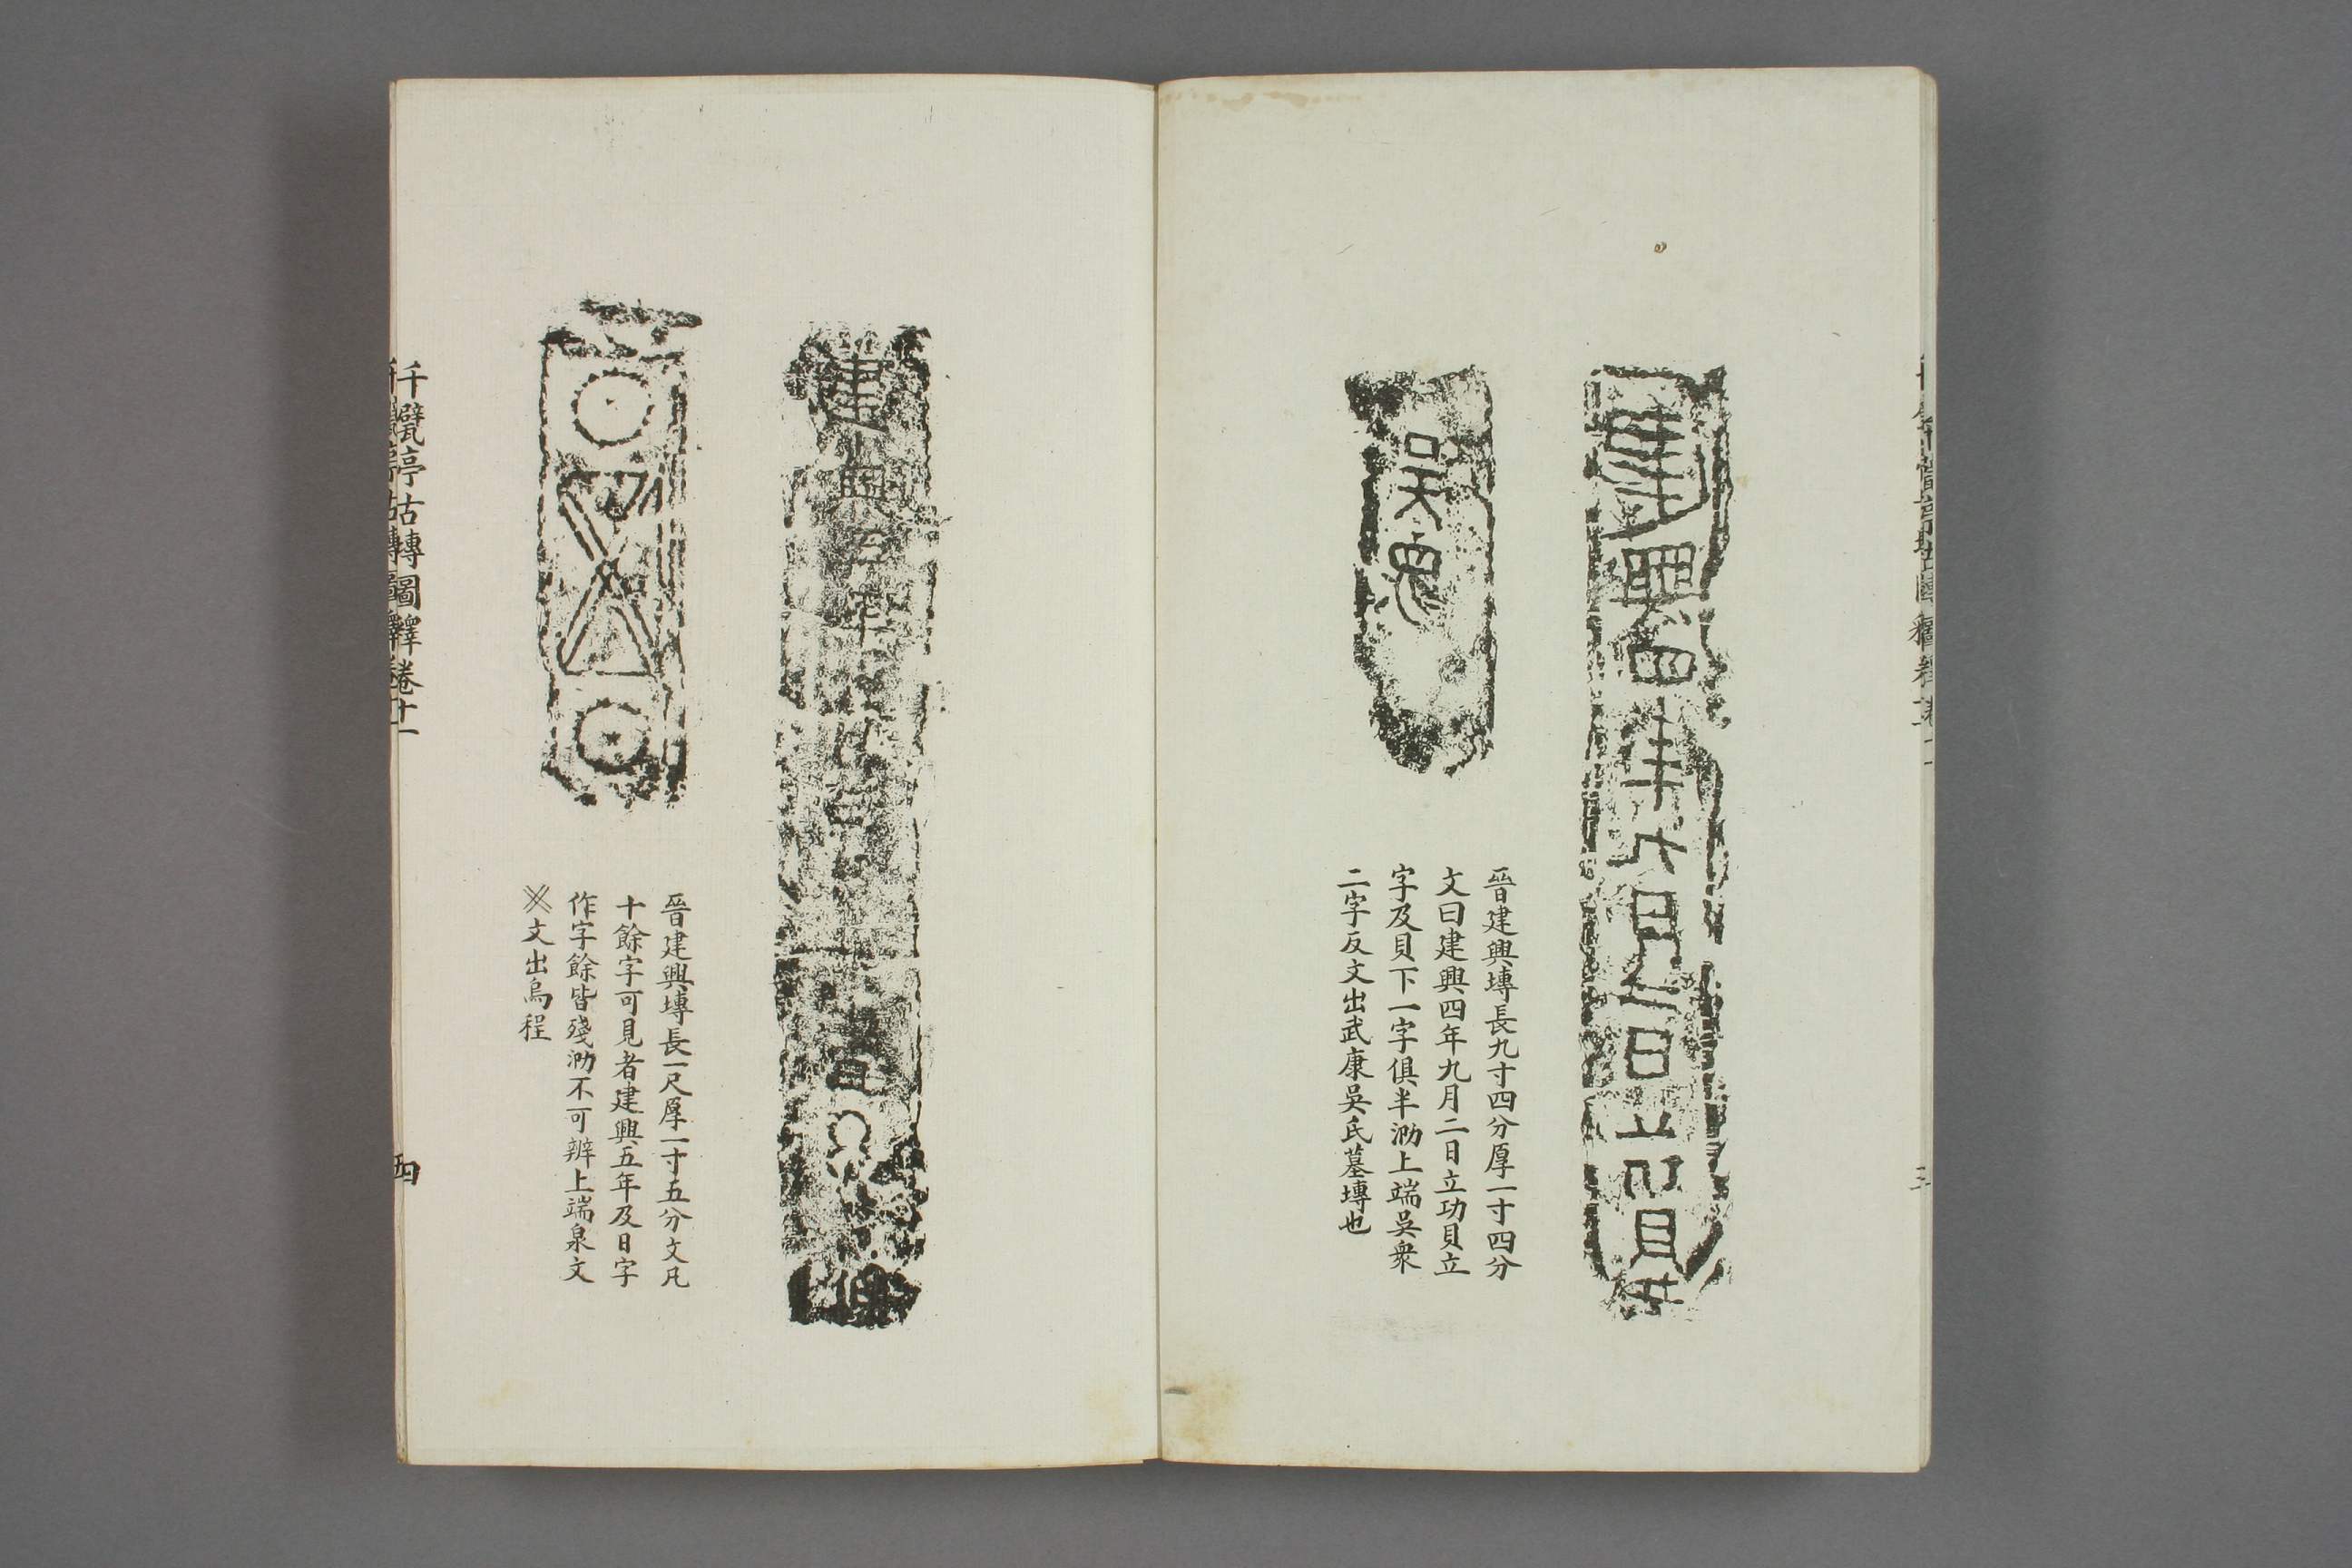 建興四年九月二日立功貝立
吳衆
晉建興塼長九寸四分厚一寸四分
文曰建興四年九月二日立功貝立
字及貝下一字俱半泐上端吳衆
二字反文出武康吳氏墓塼也
建興五年
晉建興塼長一尺厚一寸五分文凡
十餘字可見者建興五年及日字
作字餘皆殘泐不可辨上端泉文
文出烏程
千甓亭古塼圖釋卷十一
四